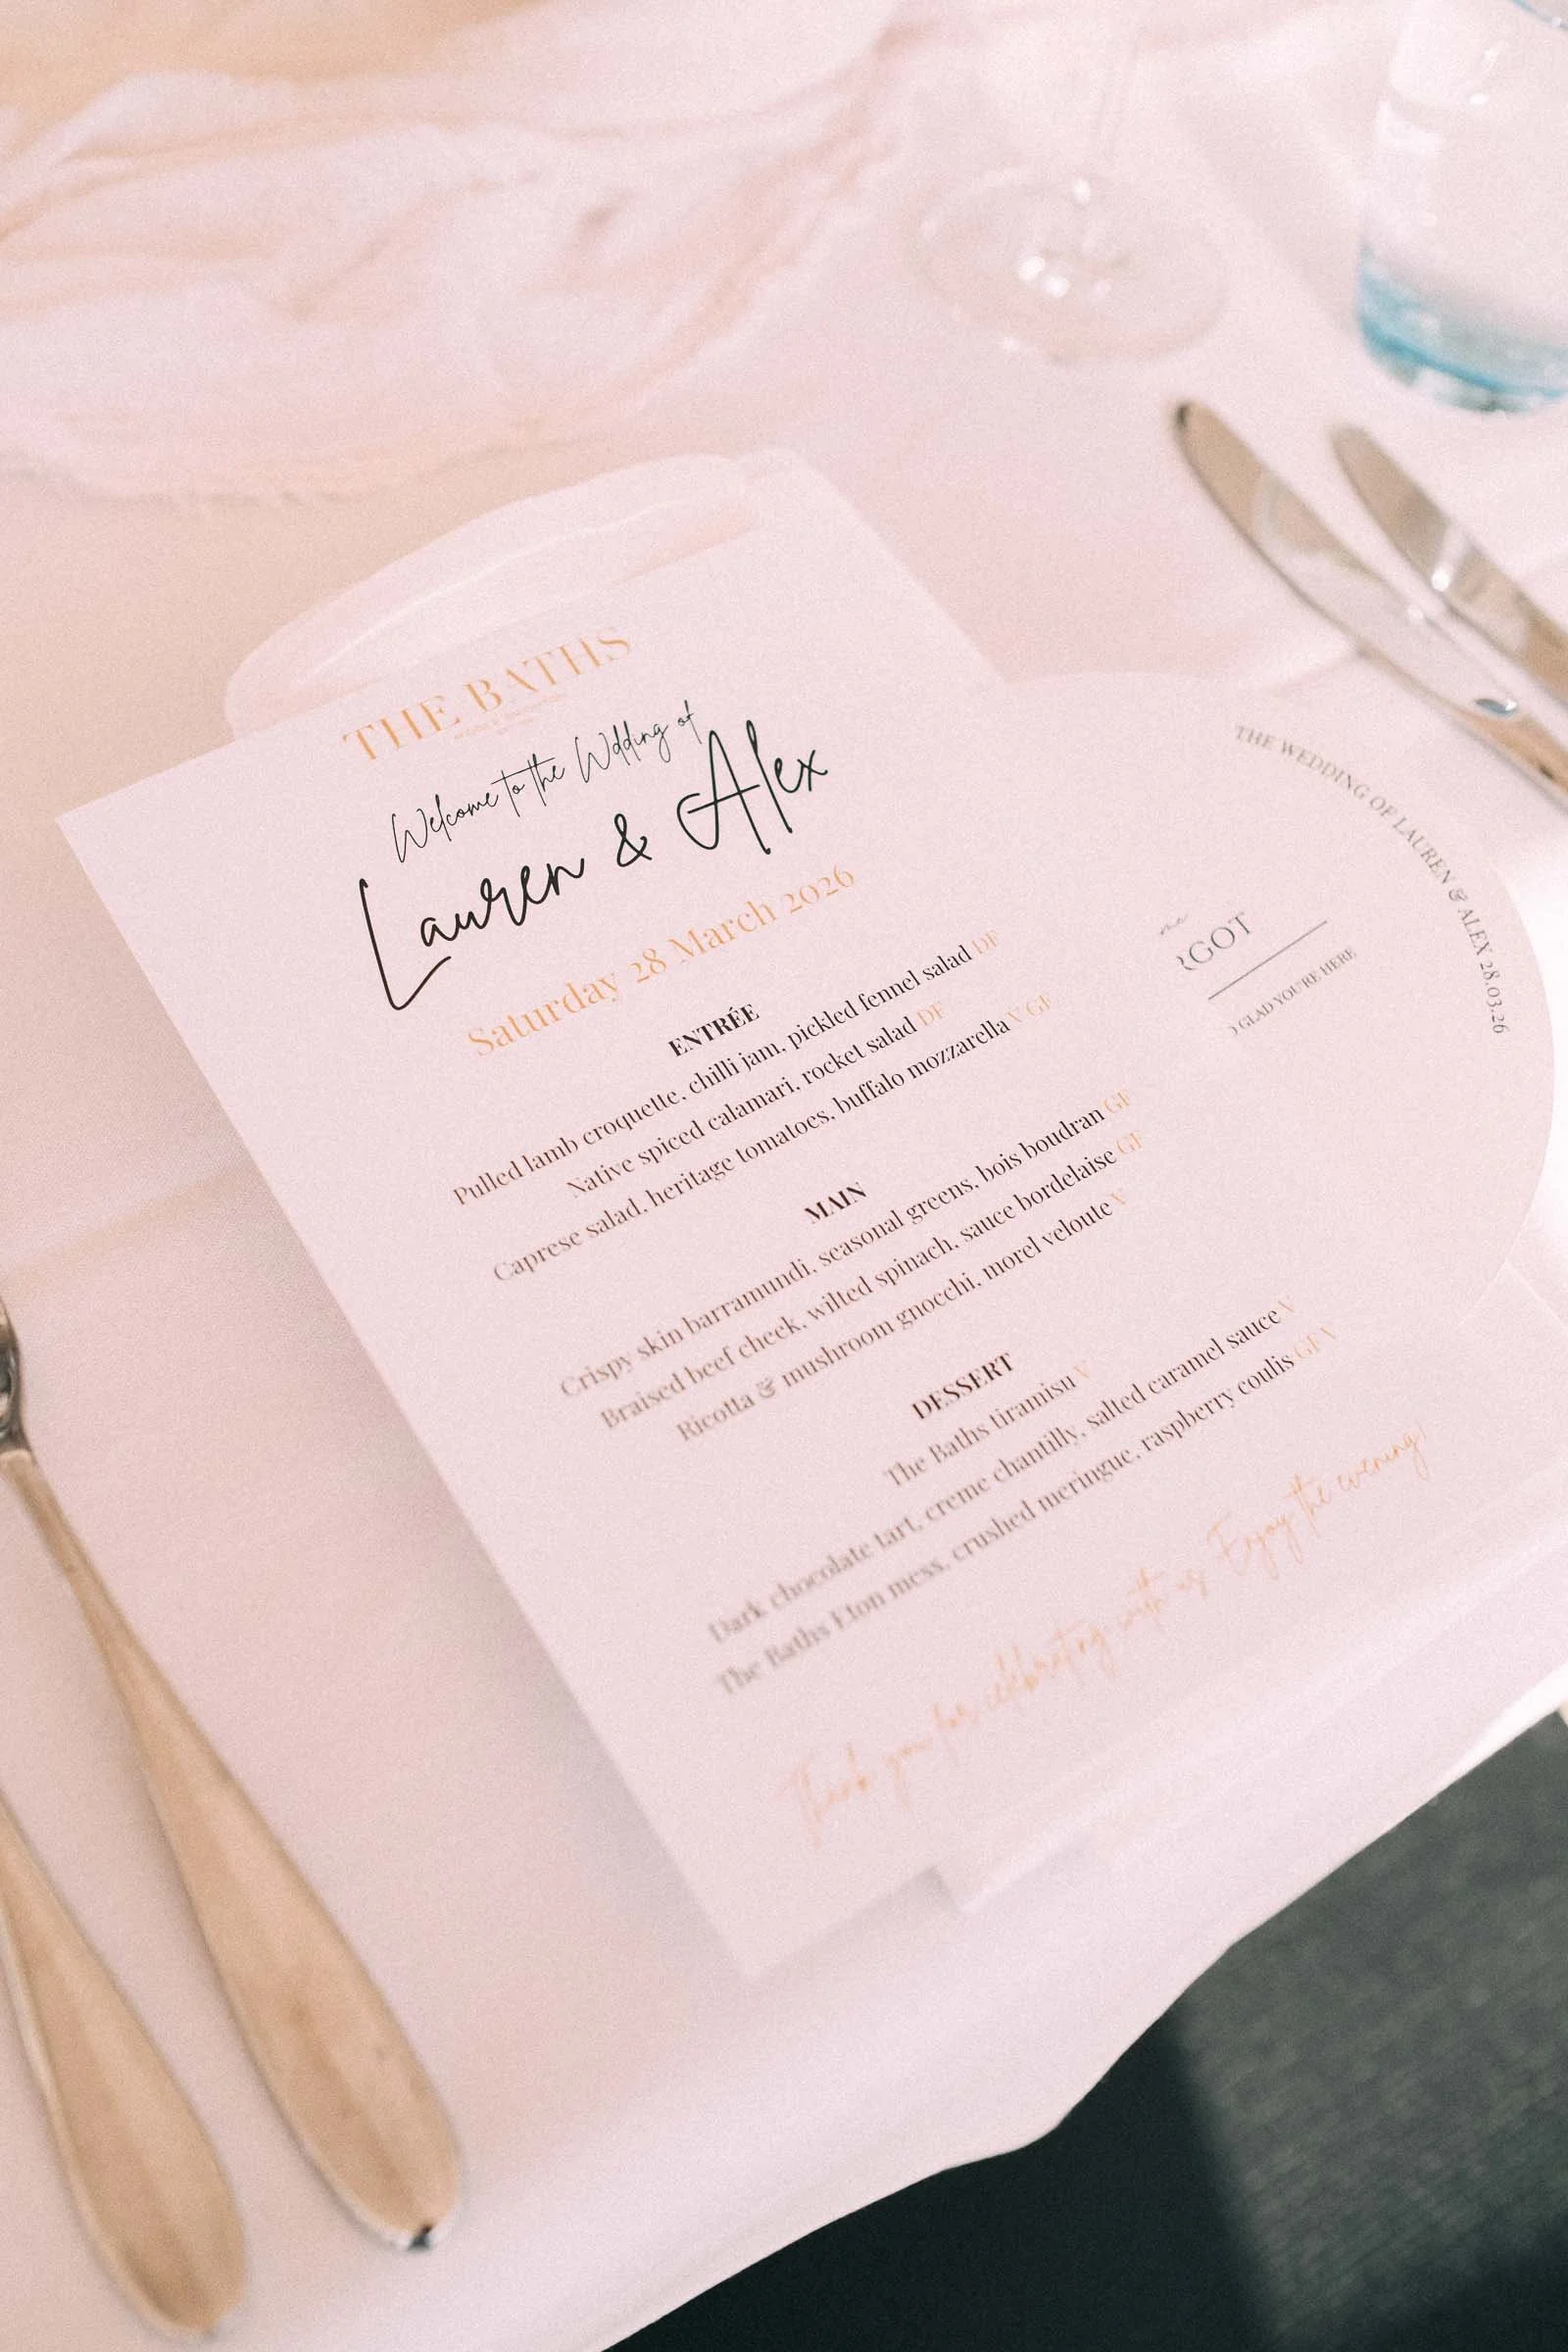 THE BATHS
Welcome to the Wedding of
Lauren & Alex
Saturday 28 March 2026
ENTRÉE
Pulled lamb croquette, chilli jam, pickled fennel salad DF
Native spiced calamari, rocket salad DF
Caprese salad, heritage tomatoes, buffalo mozzarella V GF
MAIN
Crispy skin barramundi, seasonal greens, bois boudran GF
Braised beef cheek, wilted spinach, sauce bordelaise GF
Ricotta & mushroom gnocchi, morel veloute V
DESSERT
The Baths tiramisu V
Dark chocolate tart, creme chantilly, salted caramel sauce V
The Baths Eton mess, crushed meringue, raspberry coulis GF V
Thank you for celebrating with us. Enjoy the evening!
THE WEDDING OF LAUREN & ALEX 28.03.26
RGOT
GLAD YOU'RE HERE